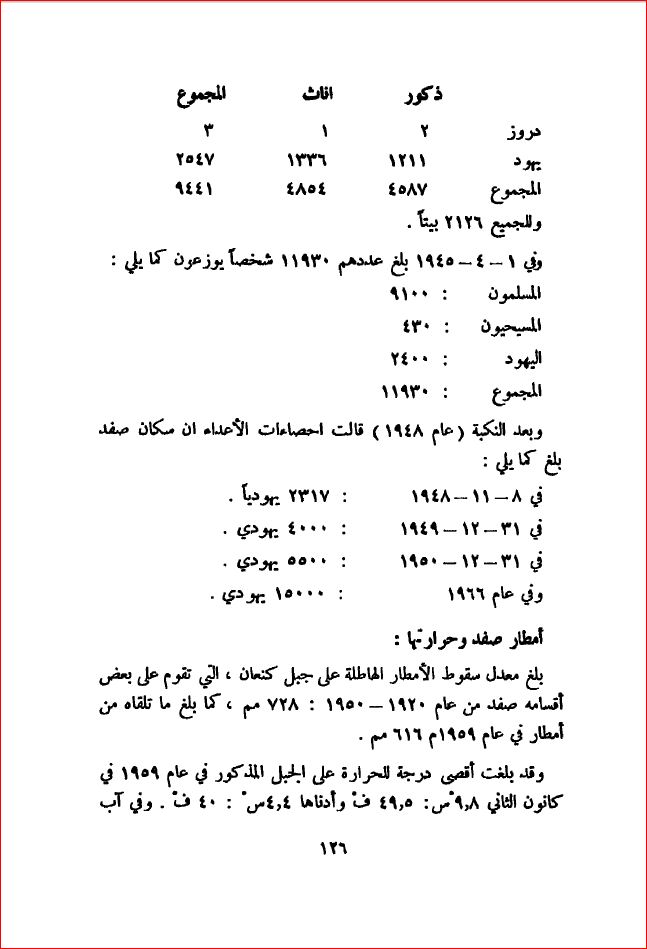 ذكور اناث المجموع
دروز ٢ ١ ٣
يهود ١٢١١ ١٣٣٦ ٢٥٤٧
المجموع ٤٥٨٧ ٤٨٥٤ ٩٤٤١
وللجميع ٢١٢٦ بيتاً .
وفي ١ – ٤ – ١٩٤٥ بلغ عددهم ١١٩٣٠ شخصاً يوزعون كما يلي :
المسلمون : ٩١٠٠
المسيحيون : ٤٣٠
اليهود : ٢٤٠٠
المجموع : ١١٩٣٠
وبعد النكبة ( عام ١٩٤٨ ) قالت احصاءات الأعداء ان سكان صفد
بلغ كما يلي :
في ٨ – ١١ – ١٩٤٨ : ٢٣١٧ يهودياً .
في ٣١ – ١٢ – ١٩٤٩ : ٤٠٠٠ يهودي .
في ٣١ – ١٢ – ١٩٥٠ : ٥٥٠٠ يهودي .
وفي عام ١٩٦٦ : ١٥٠٠٠ يهودي .
أمطار صفد وحرارتها :
بلغ معدل سقوط الأمطار الهاطلة على جبل كنعان ، التي تقوم على بعض
أقسامه صفد من عام ١٩٢٠ – ١٩٥٠ : ٧٢٨ مم ، كما بلغ ما تلقاه من
أمطار في عام ١٩٥٩م ٦١٦ مم .
وقد بلغت أقصى درجة للحرارة على الجبل المذكور في عام ١٩٥٩ في
كانون الثاني ٩,٨°س : ٤٩,٥ ف° وأدناها ٤,٤س° : ٤٠ ف° . وفي آب
١٢٦